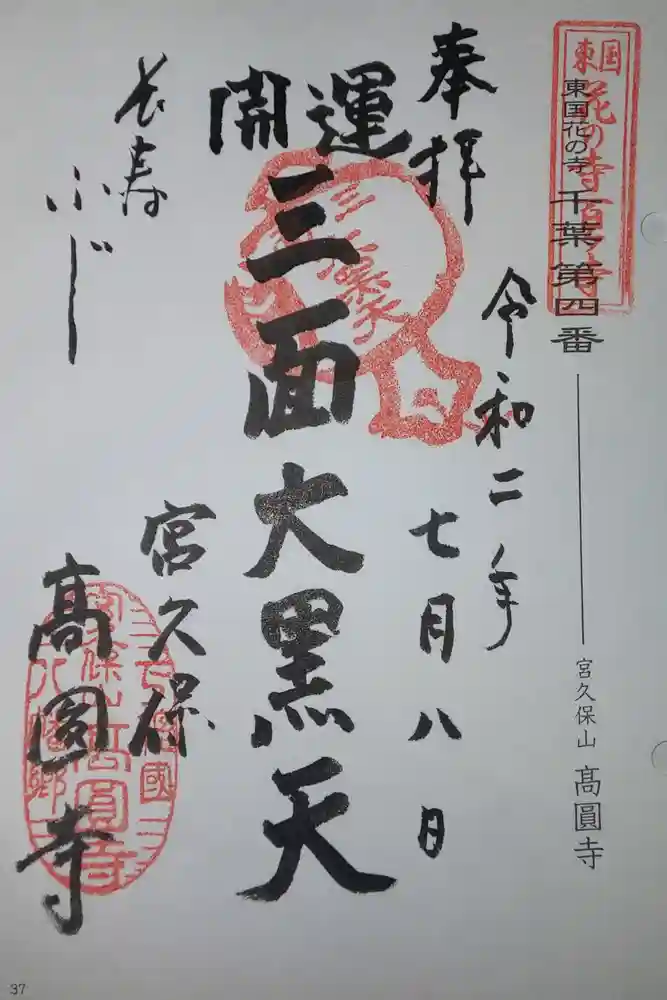 東国花の寺百ヶ寺
東国花の寺 千葉第四番
宮久保山 髙圓寺
奉拝
令和二年
七月八日
開運
三面大黒天
長寿
ふじ
宮久保
髙圓寺
37